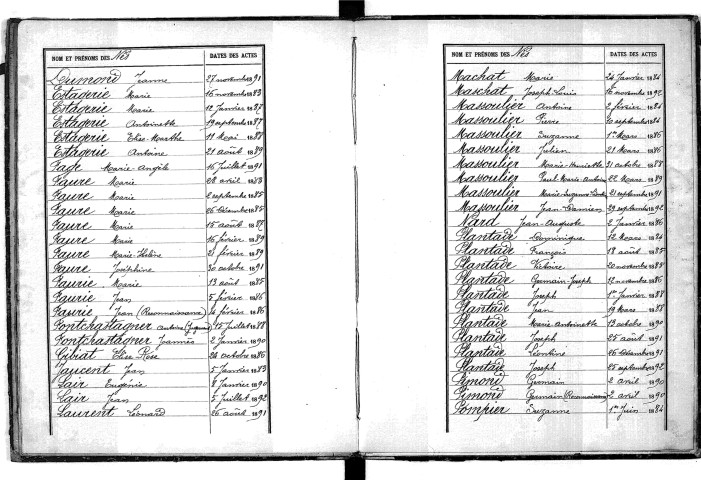 NOM ET PRÉNOMS DES Nés DATES DES ACTES
Dumond Jeanne 27 novembre 1891
Estagerie Marie 16 novembre 1883
Estagerie Marie 12 Janvier 1887
Estagerie Antoinette 19 septembre 1887
Estagerie Elise-Marthe 11 Mai 1888
Estagerie Antoine 21 août 1889
Fage Marie-Angèle 16 Juillet 1891
Faure Marie 28 avril 1883
Faure Marie 2 septembre 1885
Faure Marie 26 Décembre 1885
Faure Marie 15 août 1887
Faure Marie 16 février 1889
Faure Marie-Hélène 21 février 1889
Faure Joséphine 30 octobre 1891
Faurie Marie 13 août 1885
Faurie Jean 5 février 1886
Faurie Jean (Reconnaissance) 14 février 1886
Pontchastagner Antoine 15 Juillet 1888
Pontchastagner Joannès 2 Janvier 1890
Gibiat Elise Rose 24 octobre 1886
Jaucent Jean 5 Janvier 1883
Lair Eugénie 8 Janvier 1890
Lair Jean 5 Juillet 1892
Laurent Léonard 26 août 1891
NOM ET PRÉNOMS DES Nés DATES DES ACTES
Machat Marie 24 Janvier 1884
Maschat Joseph-Louis 16 novembre 1892
Massoulier Antoine 2 février 1884
Massoulier Pierre 20 septembre 1884
Massoulier Suzanne 1er Mars 1886
Massoulier Julien 21 Mars 1886
Massoulier Marie-Henriette 31 octobre 1888
Massoulier Paul-Marie-Antoine 22 Mars 1889
Massoulier Marie-Suzanne 21 septembre 1891
Massoulier Jean-Damien 29 septembre 1892
Nard Jean-Auguste 2 Janvier 1886
Plantade Dominique 12 Mars 1884
Plantade François 18 août 1885
Plantade Victoire 20 novembre 1885
Plantade Germain-Joseph 12 novembre 1886
Plantade Joseph 1er Janvier 1888
Plantade Jean 19 Mars 1888
Plantade Marie-Antoinette 13 octobre 1890
Plantade Joseph 25 août 1891
Plantade Léontine 26 Décembre 1891
Plantade Joseph 25 septembre 1892
Simond Germain 2 avril 1890
Simond Germain (Reconnaissance) 2 avril 1890
Pompier Suzanne 1er Juin 1884